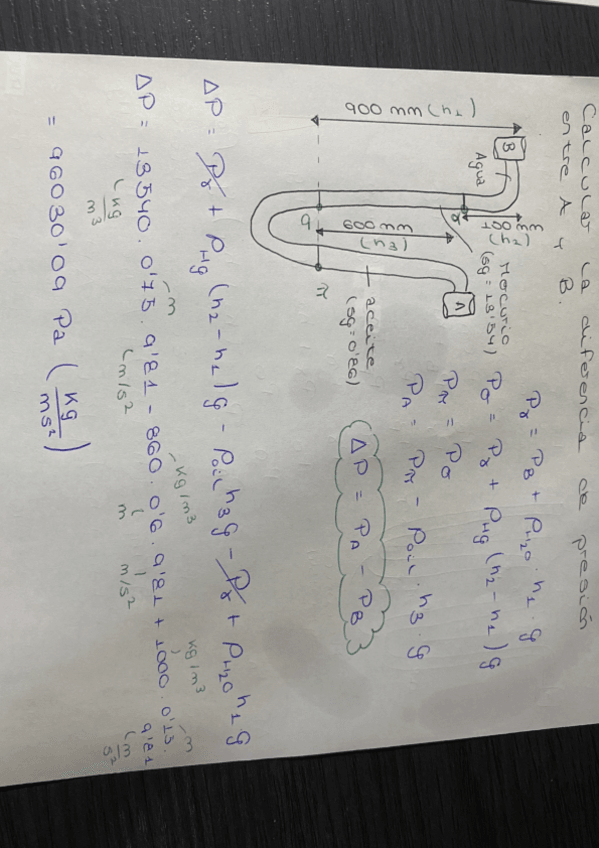 Calcular la diferencia de presión
entre A y B.
900 mm (h₁)
B
Agua
(h₂)
Mercurio
(sg = 13'54)
600 mm
(h₃)
A
aceite
(sg = 0'86)
σ
π
γ
P_γ = P_B + ρ_H₂O · h₁ · g
P_σ = P_γ + ρ_Hg (h₂ - h₁) g
P_π = P_σ
P_A = P_π - ρ_oil · h₃ · g
ΔP = P_A - P_B
ΔP = P_γ + ρ_Hg (h₂ - h₁) g - ρ_oil h₃ g - P_γ + ρ_H₂O h₁ g
ΔP = 13540 · 0'75 · 9'81 - 860 · 0'6 · 9'81 + 1000 · 0'15 · 9'81
kg/m³ m m/s² kg/m³ m m/s² kg/m³ m m/s²
= 96030'09 Pa (kg/ms²)